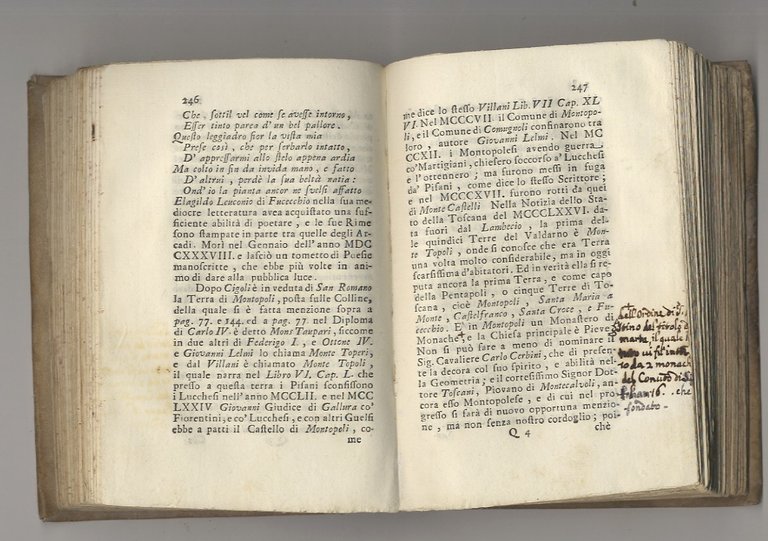 246
Che sottil vel come se avesse intorno,
Esser tinto parea d'un bel pallore.
Questo leggiadro fior la vista mia
Prese così, che per serbarlo intatto,
D'appressarmi allo stelo appena ardia
Ma colto in sin da invida mano, e fatto
D'altrui, perdè la sua beltà natia:
Ond'io la pianta ancor ne svelsi affatto
Elagildo Leuconio di Fucecchio nella sua me-
diocre letteratura avea acquistato una suf-
ficiente abilità di poetare, e le sue Rime
sono stampate in parte tra quelle degli Ar-
cadi. Morì nel Gennaio dell'anno MDC
CXXXVIII. e lasciò un tometto di Poesie
manoscritte, che ebbe più volte in ani-
mo di dare alla pubblica luce.
Dopo Cigoli è in veduta di San Romano
la Terra di Montopoli, posta sulle Colline,
della quale si è fatta menzione sopra a
pag. 77. e 144. ed a pag. 77 nel Diploma
di Carlo IV. è detto Mons Taupari, siccome
in due altri di Federigo I., e Ottone IV.
e Giovanni Lelmi lo chiama Monte Toperi,
e dal Villani è chiamato Monte Topoli,
il quale narra nel Libro VI. Cap. L. che
presso a questa terra i Pisani sconfissono
i Lucchesi nell'anno MCCLII. e nel MCC
LXXIV Giovanni Giudice di Gallura co'
Fiorentini, e co' Lucchesi, e con altri Guelfi
ebbe a patti il Castello di Montopoli, co-
me
247
me dice lo stesso Villani Lib. VII Cap. XL
VI. Nel MCCCVII. il Comune di Montopo-
li, e il Comune di Comugnoli confinarono tra
loro, autore Giovanni Lelmi. Nel MC
CCXII. i Montopolesi avendo guerra
co' Martigiani, chiesero soccorso a' Lucchesi
e l'ottennero; ma surono messi in fuga
da' Pisani, come dice lo stesso Scrittore;
e nel MCCCXVII. furono rotti da quei
di Monte Castelli Nella Notizia dello Sta-
to della Toscana del MCCCLXXVI. da-
ta fuori dal Lambecio, la prima del-
le quindici Terre del Valdarno è Mon-
te Topoli, onde si conosce che era Terra
una volta molto considerabile, ma in oggi
scarsissima d'abitatori. Ed in verità ella si re-
puta ancora la prima Terra, e come capo
della Pentapoli, o cinque Terre di To-
scana, cioè Montopoli, Santa Maria a
Monte, Castelfranco, Santa Croce, e Fu-
cecchio. E' in Montopoli un Monastero di
Monache, e la Chiesa principale è Pieve.
Non si può fare a meno di nominare il
Sig. Cavaliere Carlo Cerbini, che di presen-
te la decora col suo spirito, e abilità nel-
la Geometria; e il cortesissimo Signor Dot-
tore Toscani, Piovano di Montecalvoli, an-
cora esso Montopolese, e di cui nel pro-
gresso si farà di nuovo opportuna menzio-
ne, ma non senza nostro cordoglio; poi-
Q 4 chè
dell'Ordine di
il quale
da 2 monach
del
che
fondato